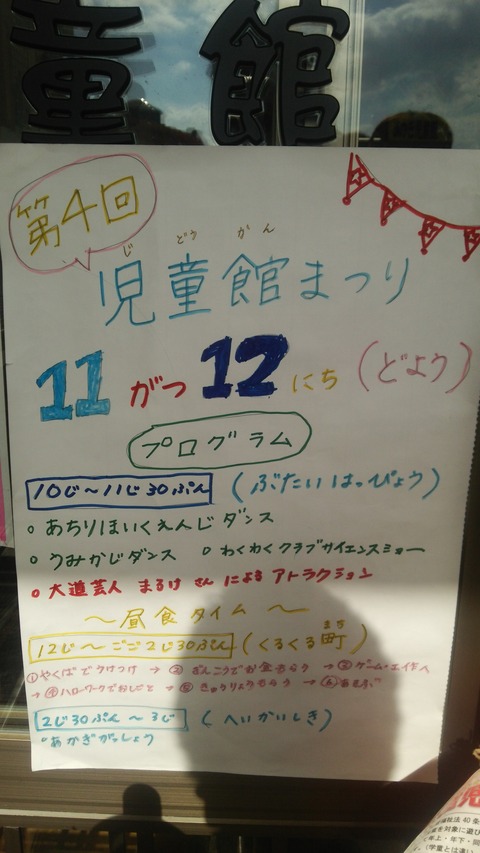 童館
第4回
じどうかん
児童館まつり
11がつ12にち(どよう)
プログラム
10じ~11じ30ぷん(ぶたいはっぴょう)
○あちりほいくえんじダンス
○うみかじダンス ○わくわくクラブサイエンスショー
○大道芸人 まるけ さん による アトラクション
~昼食タイム~
まち
12じ~ごご2じ30ぷん(くるくる町)
①やくばでうけつけ→②ぎんこうでお金もらう→③ゲーム・工作
→④ハローワークでおしごと→⑤きゅうりょうもらう→⑥あそぶ
2じ30ぷん~3じ(へいかいしき)
○あかぎがっしょう
祉法40条
を対象に遊び